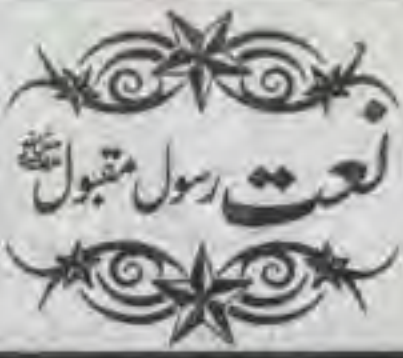 نعت رسول مقبول ﷺ